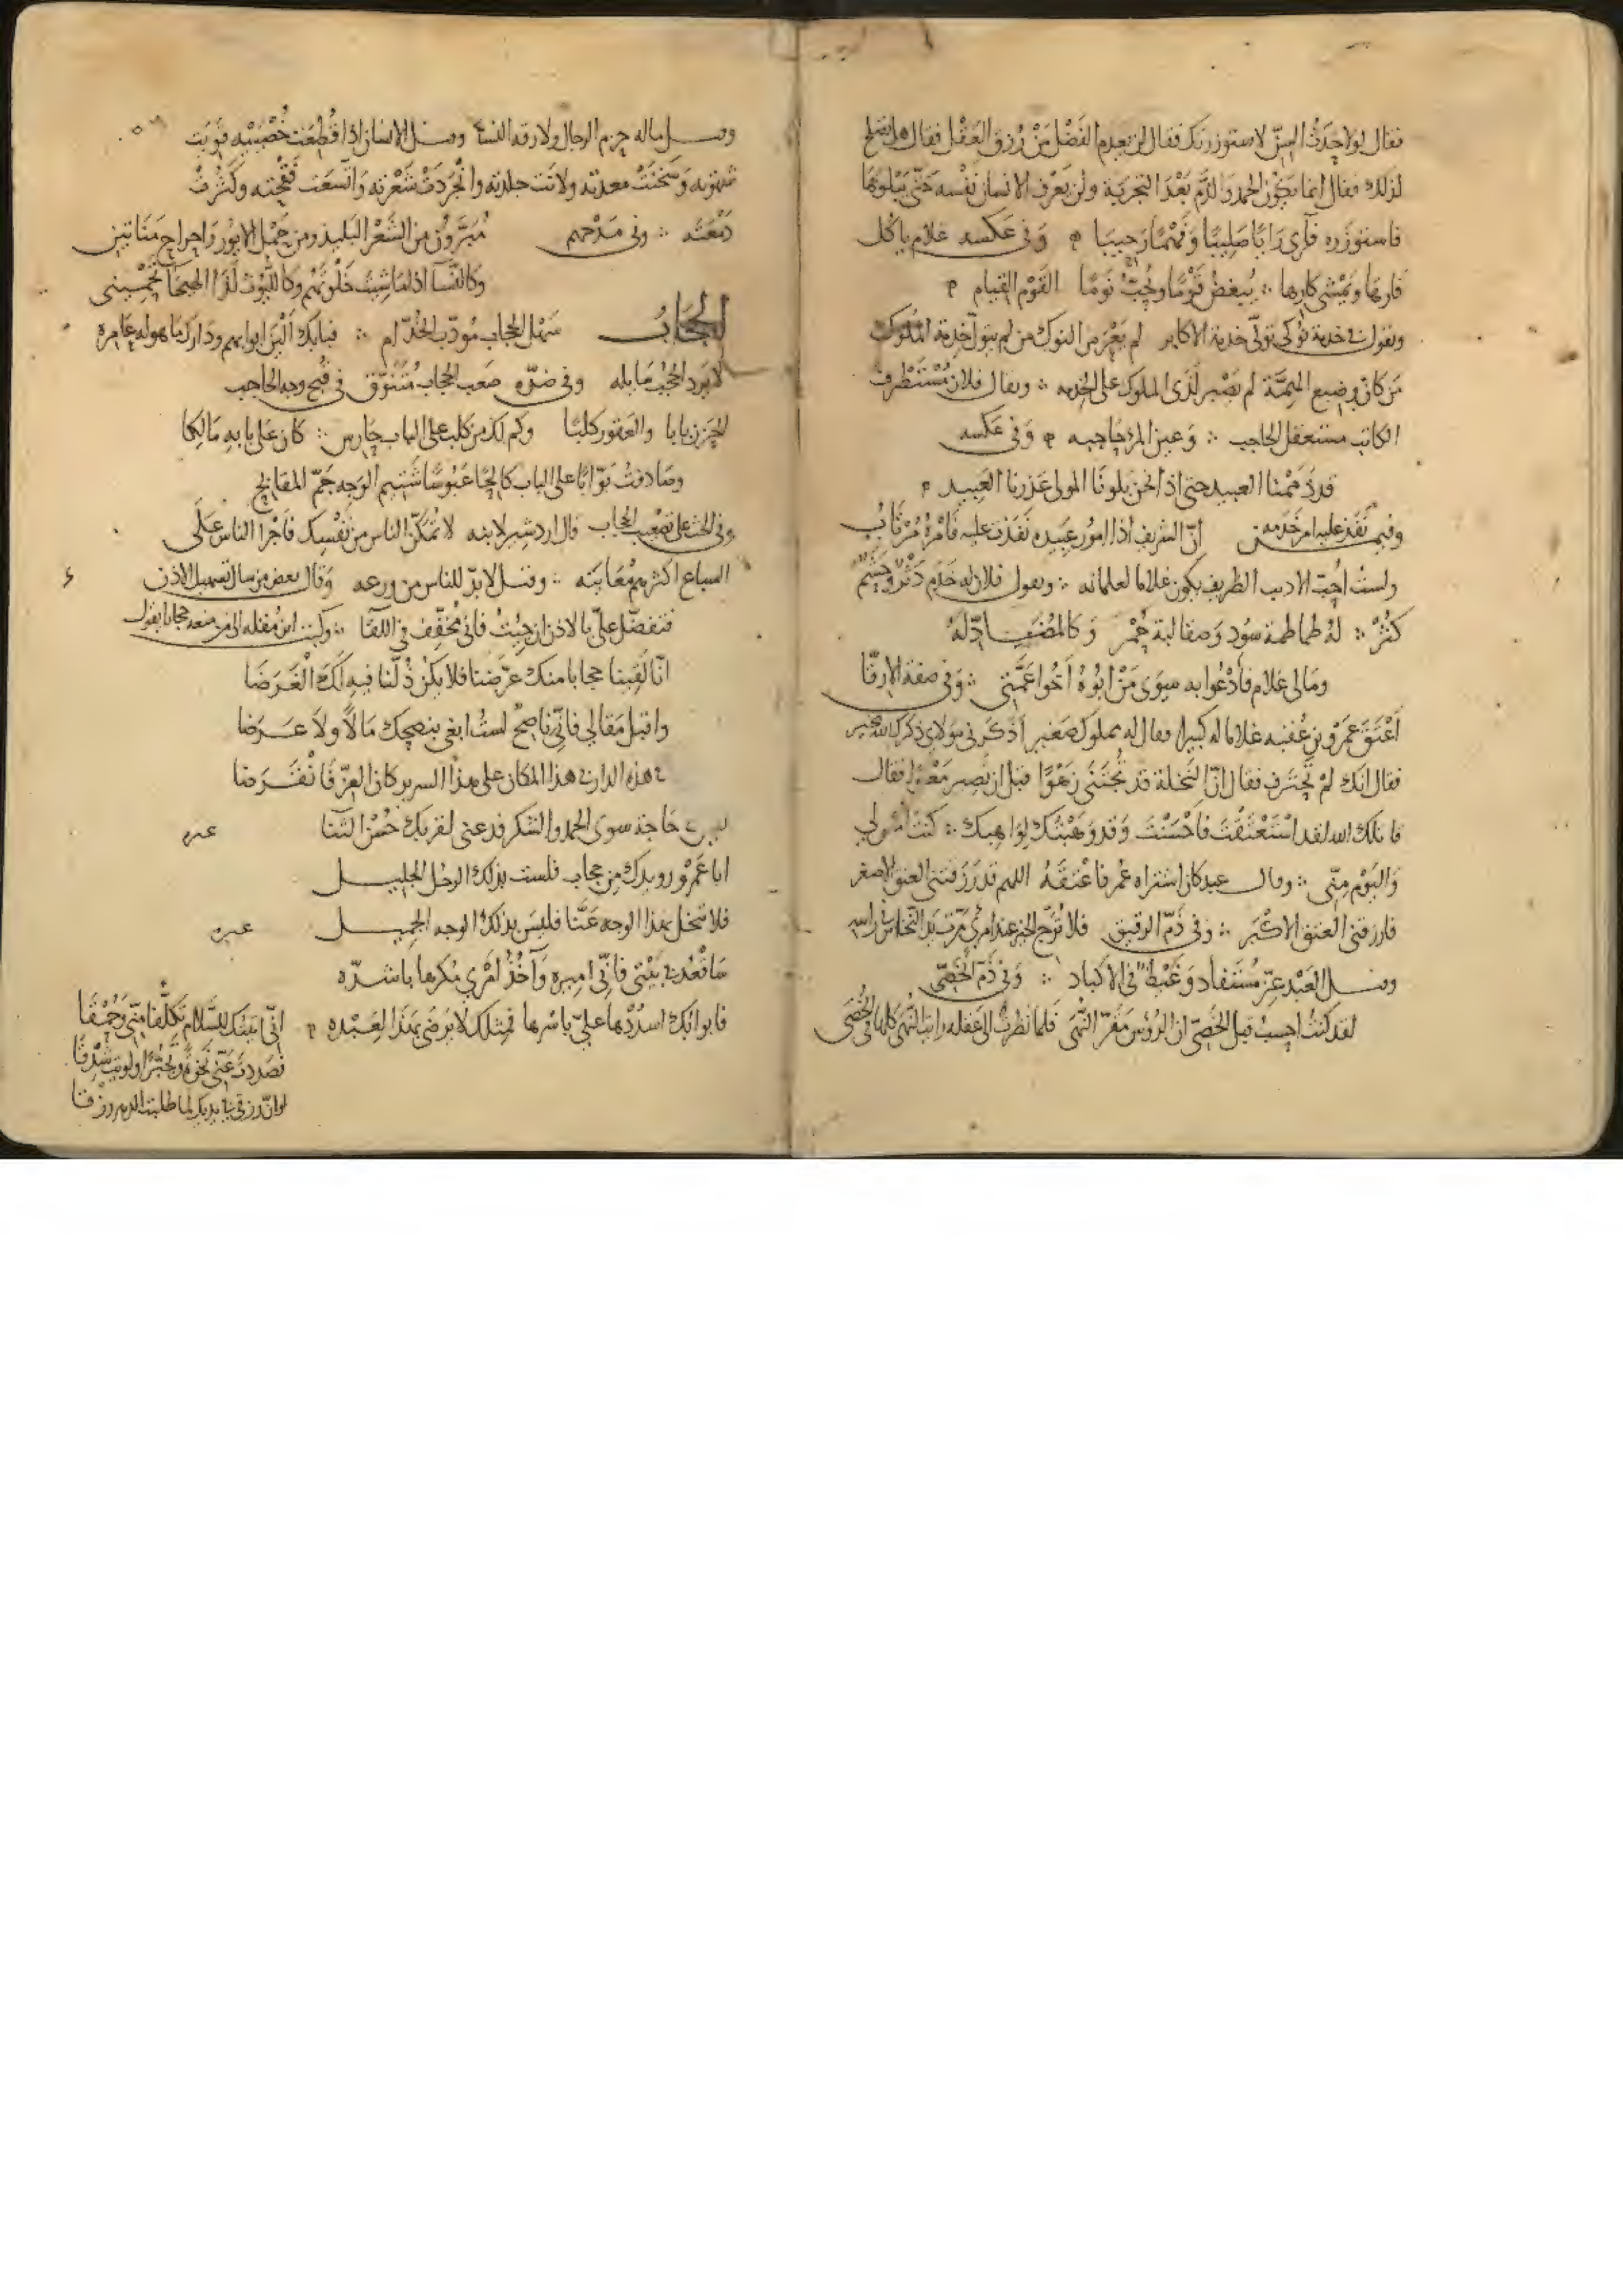 فقال لولا حدث السن لاستوزرتك فقال لن يعدم الفضل من رزق العقل فقال هل يصلح
لذلك فقال انما يكون الحمد والذم بعد التجربة ولن يعرف الانسان نفسه حتى يبلوها
فاستوزره فرأى رايا صليبا وفهما رحيبا وفي عكسه غلام ياكل
فارها ويمشي كارها يبغض قوما ويحب نوما القوم القيام
من كان وضيع الهمة لم يصبر لدى الملوك على الخدمه ويقال فلان مستظرف
الكاتب مستعقل الحاجب وعين المرء حاجبه وفي عكسه
قد ذممنا العبيد حتى اذا نحن بلونا المولى عذرنا العبيد
وفيمن نفذ عليه امر خدمه ان الشريف اذا امور عبيده نفذت عليه فامره مرتاب
ولست احب الاديب الظريف يكون غلاما لغلمانه ويقول فلان له خدم دثر وحشم
كثر له طماطمة سود وصقالبة حمر وفي المضاد له
ومالي غلام فادعوا به سوى من ابوه اخوا عمتي وفي صفة الارقا
اعتق عمرو بن عقبه غلاما له كبيرا فقال له مملوك صغير اذكرني مولاي ذكرك الله بخير
فقال انك لم تحترف فقال ان النخلة قد تجتنى زهوا قبل ان تصير معوا فقال
قاتلك الله لقد استعتقت فاحسنت وقد وهبتك لواهبك كنت امس لي
واليوم مني وقال عبد كان اشتراه عمر فاعتقه اللهم قد رزقتني العتق الاصغر
فارزقني العتق الاكبر وفي ذم الرقيق فلا ترج الخير عند امرئ مرت يد النخاس في راسه
وقيل العبد عز مستفاد وغيظ في الاكباد وفي ذم الخصي
لقد كنت احسب قبل الخصي ان الرؤس مقر النهى فلما نظرت الى عقله رايت النهى كلها في الخصى
وقيل ماله حزم الرجال ولا رقه النسا وقيل الانسان اذا قطعت خصيتيه قويت
شهوته وسخنت معدته ولانت جلدته وانجردت شعرته واتسعت فقحته وكثرت
دمعته وفي مدحهم
وكالنسا اذا ما شئت خلوتهم
الحجاب سهل الحجاب مودب الخدام فبابك الين ابوابهم ودارك ماهوله عامره
وفي ضده صعب الحجاب متنوق في قبح وجه الحاجب
وكم لك من كلب على الباب حارس كان على بابه مالكا
وصادفت بوابا على الباب كالحا عبوسا شتيم الوجه جم المقابح
وفي الحث على تصعيب الحجاب قال اردشير لابنه لا تمكن الناس من نفسك فاجرا الناس على
السباع اكثرهم معاينه وقيل لابد للناس من ورعه وقال بعض من سال تسهيل الاذن
فتفضل علي بالاذن ان جيت فاني مخفف في اللقا وكتب ابن مقله الى من منعه حجابا يقول
انا لقينا حجابا منك عرضنا فلا يكن ذلنا فيه لك الغرضا
واقبل مقالي فاني ناصح لست ابغي بنصحك مالا ولا عرضا
في هذه الدار في هذا المكان على هذا السرير كان العز فانقرضا
ليس حاجة سوى الحمد والشكر فدعني لقربك حسن الثنا غيره
ابا عمرو رويدك من حجاب فلست بذلك الرجل الجليل
فلا تبخل بهذا الوجه عنا فليس بذلك الوجه الجميل غيره
ساقعد في بيتي فاني اميره وآخذ امري مكرها باشده
فابوابك اسددها علي باسرها فمثلك لا يرضى بمثلي لعبده
اني اتيتك للسلام تكلفا مني وحمقا
فصددت عني نخوة وتجبرا ولويت شدقا
لو ان رزقي في يديك لما طلبت الدهر رزقا